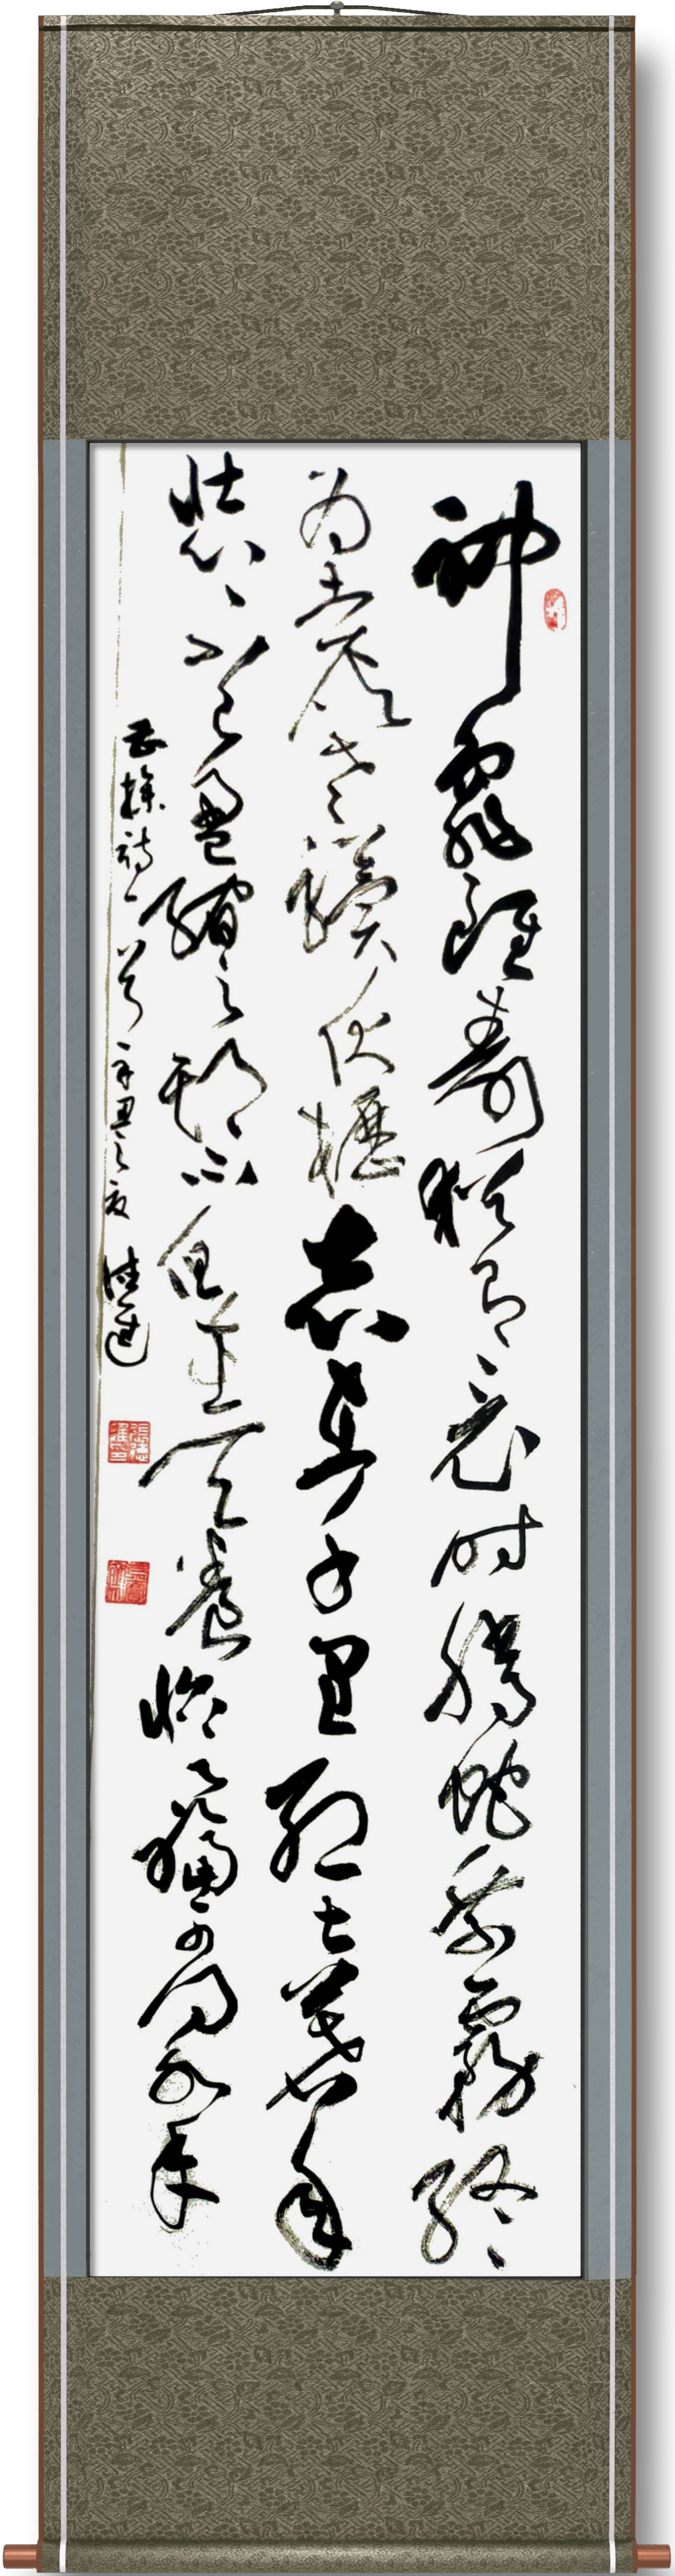 神龜雖壽猶有竟时騰蛇乘霧終
為土灰老驥伏櫪志在千里烈士暮年
壯心不已盈縮之期不但在天養怡之福可得永年
曹操詩一首辛丑之夏